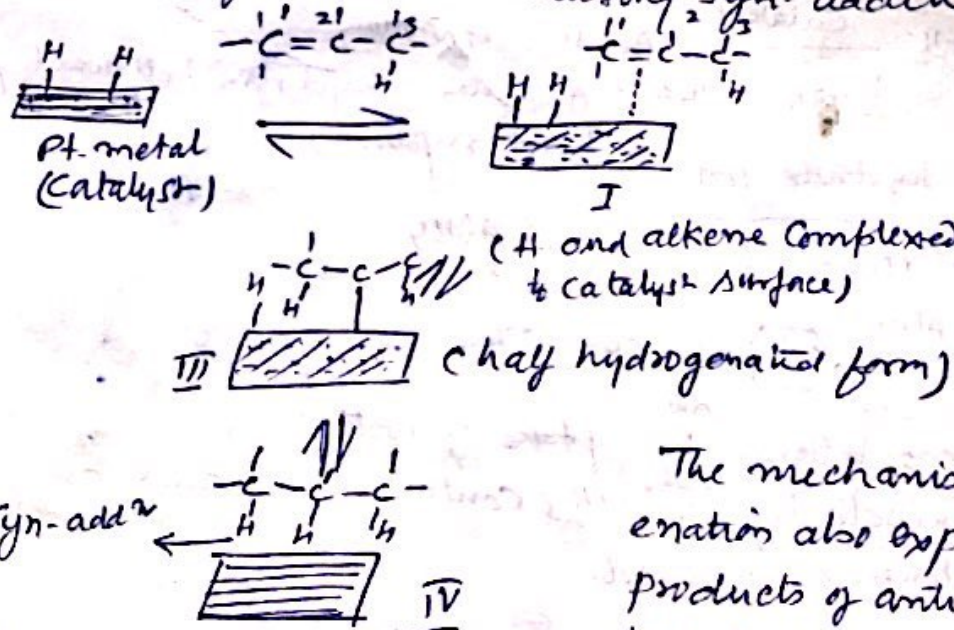 syn-addit
H H
-C=C-C-
1 2 3
H
-C=C-C-
1 2 3
H
H H
Pt-metal
(Catalyst)
I
(H and alkene Complexed
to Catalyst Surface)
-C-C-C
H H H
III
(half hydrogenated form)
-C-C-C-
H H H
yn-addn
IV
The mechanis
enation also exp
products of anti